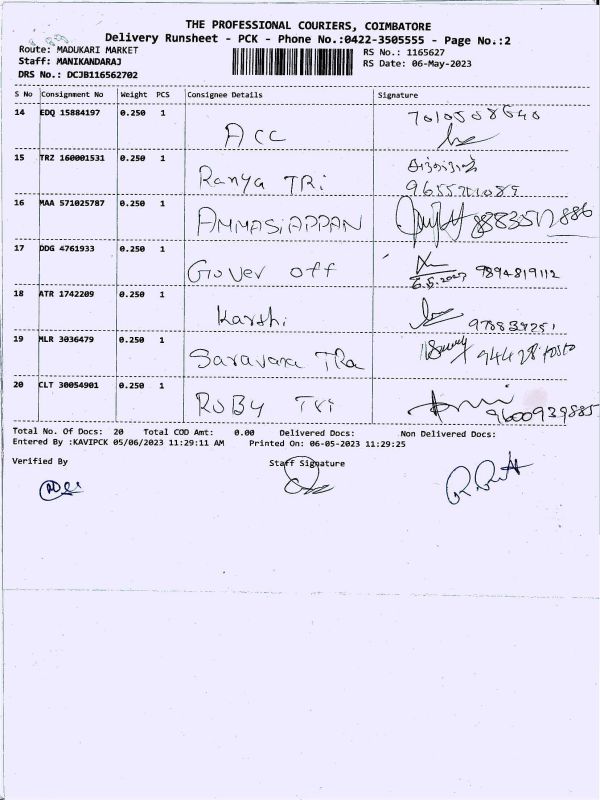 THE PROFESSIONAL COURIERS, COIMBATORE
Delivery Runsheet - PCK - Phone No.:0422-3505555 - Page No.:2
Route: MADUKARI MARKET
RS No.: 1165627
Staff: MANIKANDARAJ
RS Date: 06-May-2023
DRS No.: DCJB116562702
S No Consignment No Weight PCS Consignee Details Signature
14 EDQ 15884197 0.250 1 ACC 7010508640
15 TRZ 160001531 0.250 1 Ranya TRi
16 MAA 571025787 0.250 1 AMMASiAPPAN
17 DDG 4761933 0.250 1 Gover off 9894819112
18 ATR 1742209 0.250 1 Karthi
19 MLR 3036479 0.250 1 Saravana TRa
20 CLT 30054901 0.250 1 RUBY Tri 9600939885
Total No. Of Docs: 20 Total COD Amt: 0.00 Delivered Docs: Non Delivered Docs:
Entered By :KAVIPCK 05/06/2023 11:29:11 AM Printed On: 06-05-2023 11:29:25
Verified By Staff Signature